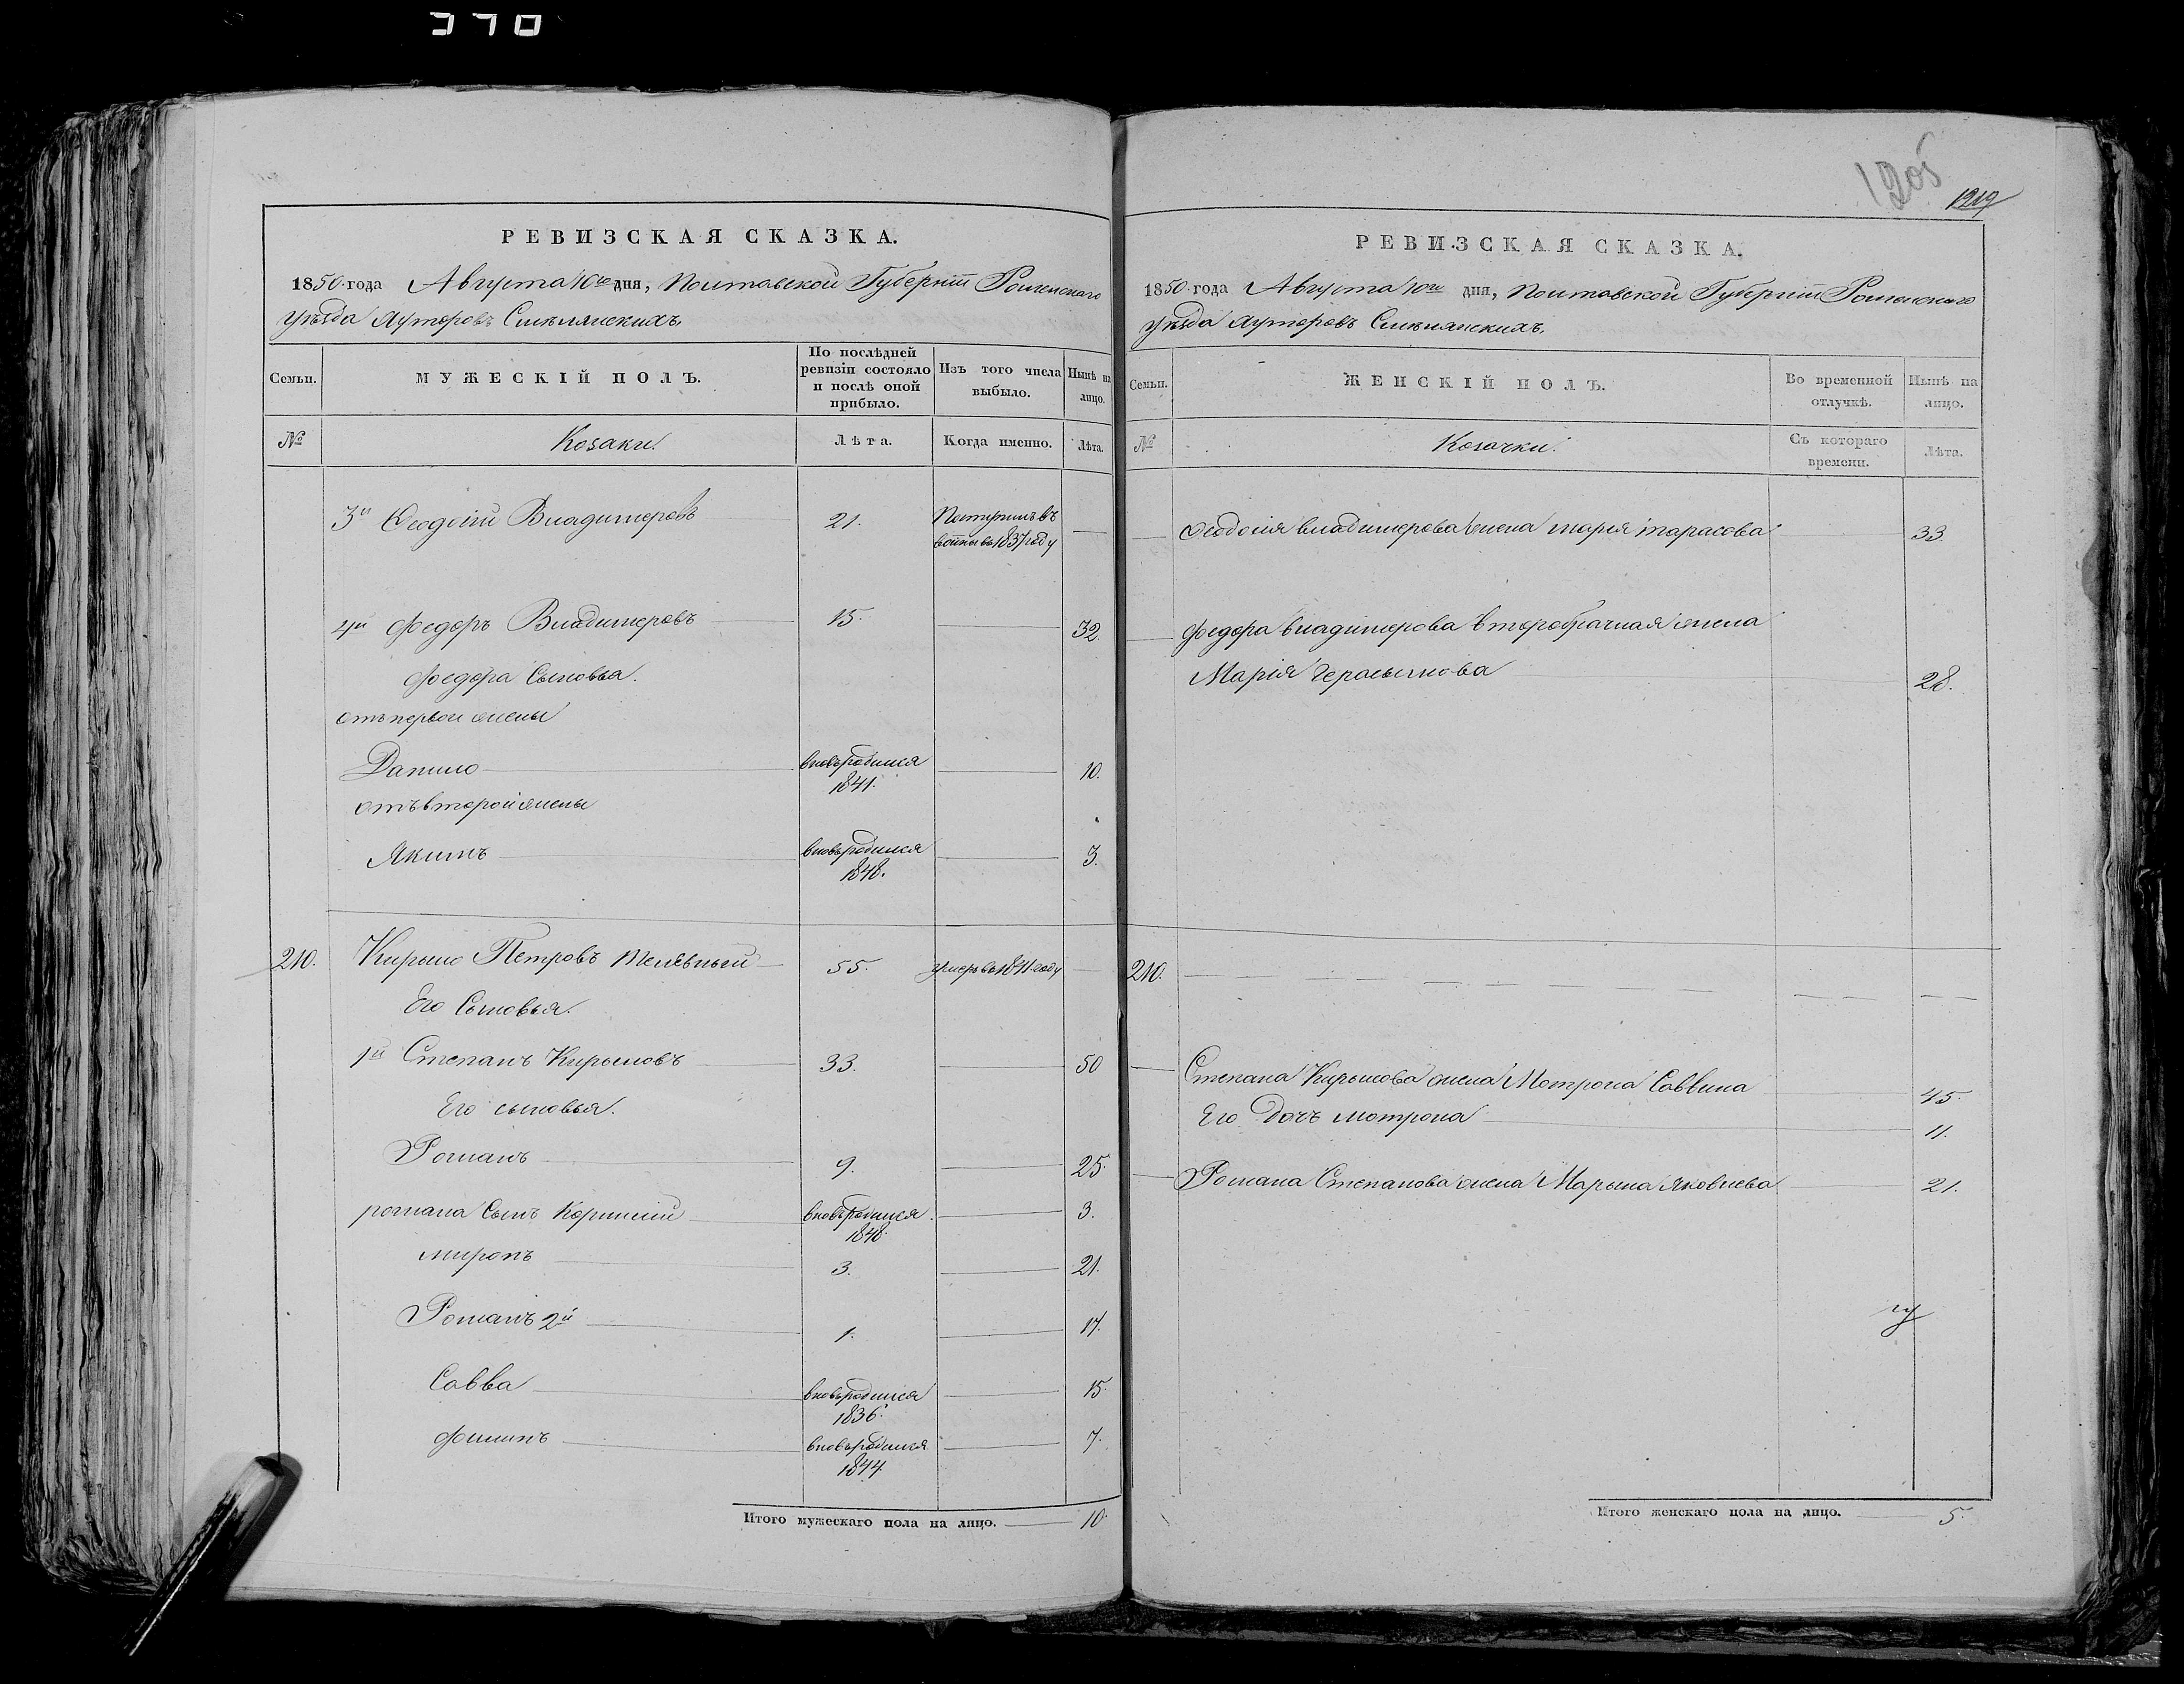 370
1205
1219
РЕВИЗСКАЯ СКАЗКА.
1850 года Августа 10го дня, Полтавской Губерніи Роменскаго
уѣзда хуторовъ Смѣлянскихъ.
Семьи.
МУЖЕСКІЙ ПОЛЪ.
По послѣдней ревизіи состояло и послѣ оной прибыло.
Изъ того числа выбыло.
Нынѣ на лицо.
№
Козаки.
Лѣта.
Когда именно.
Лѣта.
3й Феодосій Владимеровъ 21.
въ 1837 году
4й Федоръ Владимеровъ 15. 32.
Федора Сыновья.
отъ первой жены
Данило вновьродился 1841. 10.
отъ второй жены
Якимъ вновьродился 1848. 3.
210. Кирыло Петровъ 55. умеръ въ 1841 году
Его Сыновья.
1й Степанъ Кирыловъ 33. 50
Его сыновья.
Романъ 9. 25.
романа Сынъ Корнилій вновьродился 1848. 3.
миронъ 3. 21.
Романъ 2й 1. 17.
Савва вновьродился 1836. 15.
Филипъ вновьродился 1844. 7.
Итого мужескаго пола на лицо. 10.
РЕВИЗСКАЯ СКАЗКА.
1850 года Августа 10го дня, Полтавской Губерніи Роменскаго
уѣзда хуторовъ Смѣлянскихъ.
Семьи.
ЖЕНСКІЙ ПОЛЪ.
Во временной отлучкѣ.
Нынѣ на лицо.
№
Козачки.
Съ котораго времени.
Лѣта.
Феодосія владимерова жена марія тарасова 33.
Федора владимерова второбрачная жена
Марія Герасымова 28.
210.
Степана Кирылова жена Мотрона Саввина 45.
Его Дочь мотрона 11.
Романа Степанова жена Марына яковлева 21.
Итого женскаго пола на лицо. 5.